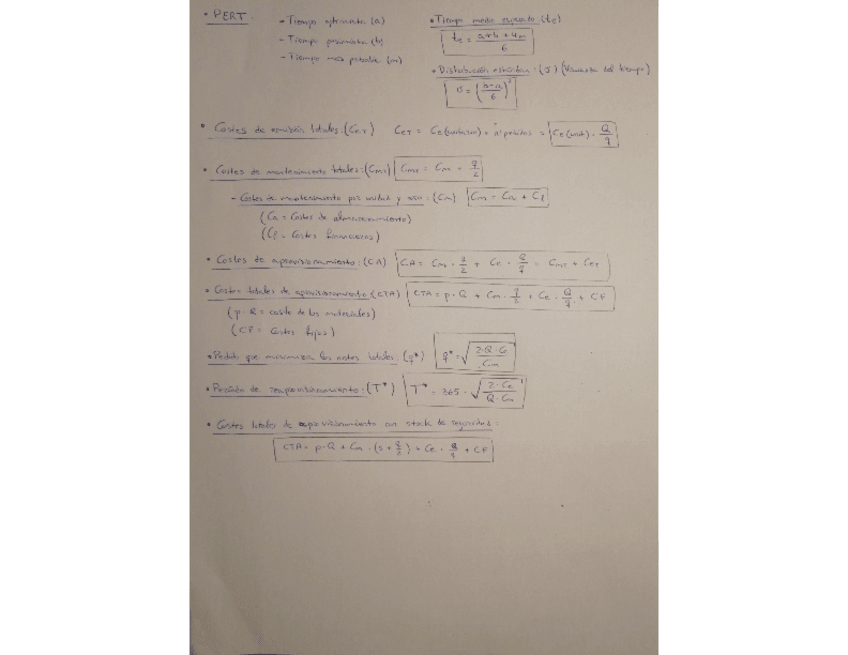 • PERT:
- Tiempo optimista (a)
- Tiempo pesimista (b)
- Tiempo más probable (m)
• Tiempo medio esperado (te)
te = a+b+4m / 6
• Distribución estándar: (σ) (Varianza del tiempo)
σ = (b-a / 6)²
• Costes de emisión totales: (CeT) CeT = Ce(unitario) · nº pedidos = Ce(unit) · Q/q
• Costes de mantenimiento totales: (CmT) CmT = Cm · q/2
- Costes de mantenimiento por unidad y año: (Cm) Cm = Ca + Cf
(Ca = Costes de almacenamiento)
(Cf = Costes financieros)
• Costes de aprovisionamiento: (CA) CA = Cm · q/2 + Ce · Q/q = CmT + CeT
• Costes totales de aprovisionamiento: (CTA) CTA = p·Q + Cm · q/2 + Ce · Q/q + CF
(p·Q = coste de los materiales)
(CF = Costes fijos)
• Pedido que minimiza los costes totales: (q*) q* = √(2·Q·Ce / Cm)
• Período de reaprovisionamiento: (T*) T* = 365 · √(2·Ce / Q·Cm)
• Costes totales de aprovisionamiento con stock de seguridad:
CTA = p·Q + Cm · (s + q/2) + Ce · Q/q + CF